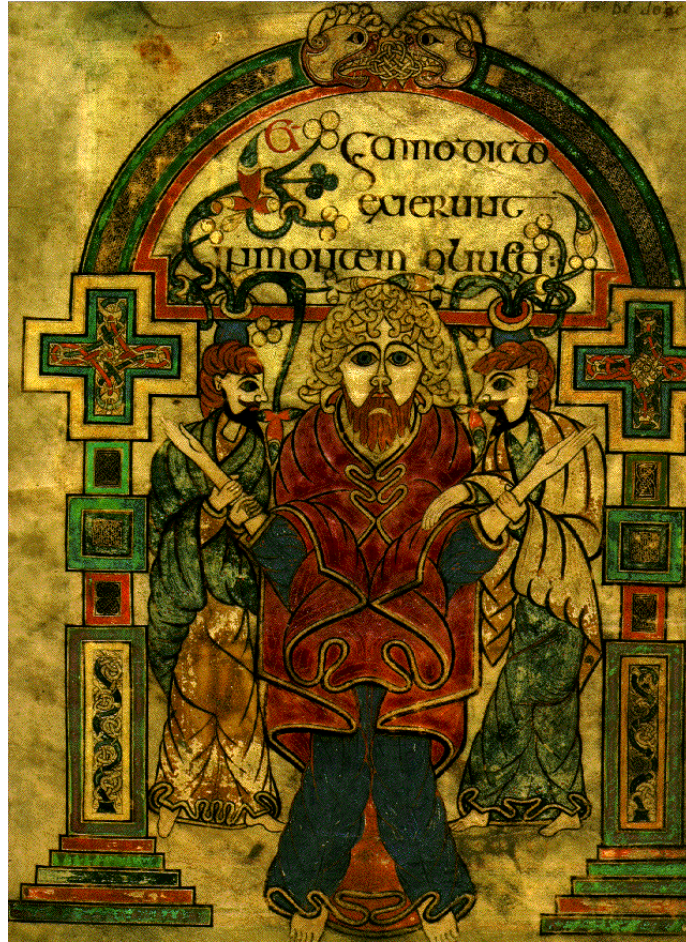 to be
Et ymno dicto
exierunt
in montem oliueti: